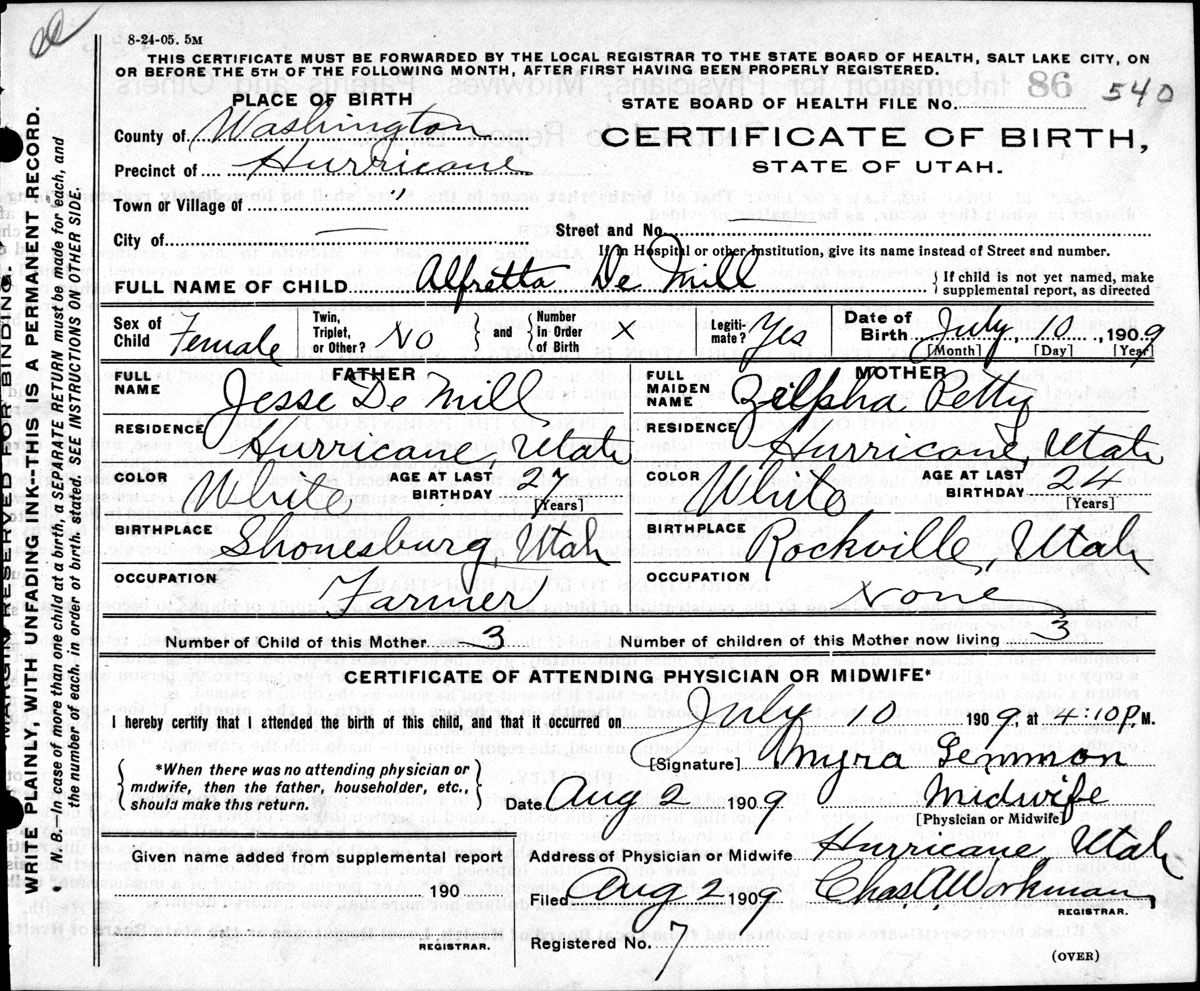 8-24-05. 5M
THIS CERTIFICATE MUST BE FORWARDED BY THE LOCAL REGISTRAR TO THE STATE BOARD OF HEALTH, SALT LAKE CITY, ON
OR BEFORE THE 5TH OF THE FOLLOWING MONTH, AFTER FIRST HAVING BEEN PROPERLY REGISTERED.
PLACE OF BIRTH
STATE BOARD OF HEALTH FILE No. 86 540
County of Washington
CERTIFICATE OF BIRTH,
Precinct of Hurricane
STATE OF UTAH.
Town or Village of "
City of —
Street and No. —
If in Hospital or other Institution, give its name instead of Street and number.
FULL NAME OF CHILD Alfretta De Mill
If child is not yet named, make
supplemental report, as directed
Sex of Child Female
Twin, Triplet, or Other? No
and
Number in Order of Birth X
Legitimate? Yes
Date of Birth July 10 1909
[Month] [Day] [Year]
FATHER
FULL NAME Jesse De Mill
MOTHER
FULL MAIDEN NAME Zilpha Petty
RESIDENCE Hurricane, Utah
RESIDENCE Hurricane, Utah
COLOR White AGE AT LAST BIRTHDAY 27 [Years]
COLOR White AGE AT LAST BIRTHDAY 24 [Years]
BIRTHPLACE Shonesburg, Utah
BIRTHPLACE Rockville, Utah
OCCUPATION Farmer
OCCUPATION None
Number of Child of this Mother 3
Number of children of this Mother now living 3
CERTIFICATE OF ATTENDING PHYSICIAN OR MIDWIFE*
I hereby certify that I attended the birth of this child, and that it occurred on July 10 1909, at 4:10 P. M.
*When there was no attending physician or
midwife, then the father, householder, etc.,
should make this return.
[Signature] Myra Lemmon
Date Aug 2 1909 Midwife
[Physician or Midwife]
Given name added from supplemental report
190
REGISTRAR.
Address of Physician or Midwife Hurricane, Utah
Filed Aug 2 1909 Chas. A. Workman
REGISTRAR.
Registered No. 7
(OVER)
MARGIN RESERVED FOR BINDING.
WRITE PLAINLY, WITH UNFADING INK--THIS IS A PERMANENT RECORD.
N. B. In case of more than one child at a birth, a SEPARATE RETURN must be made for each, and
the number of each. in order of birth. stated. SEE INSTRUCTIONS ON OTHER SIDE.